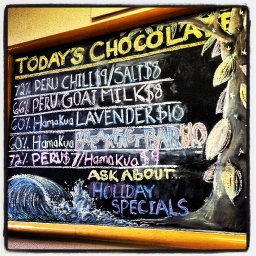 TODAY'S CHOCOLATE
72% PERU CHILI $9/SALT $8
66% PERU GOAT MILK $8
60% Hamakua LAVENDER $10
60% Hamakua
72% PERU $7/Hamakua $9
ASK ABOUT...
HOLIDAY
SPECIALS